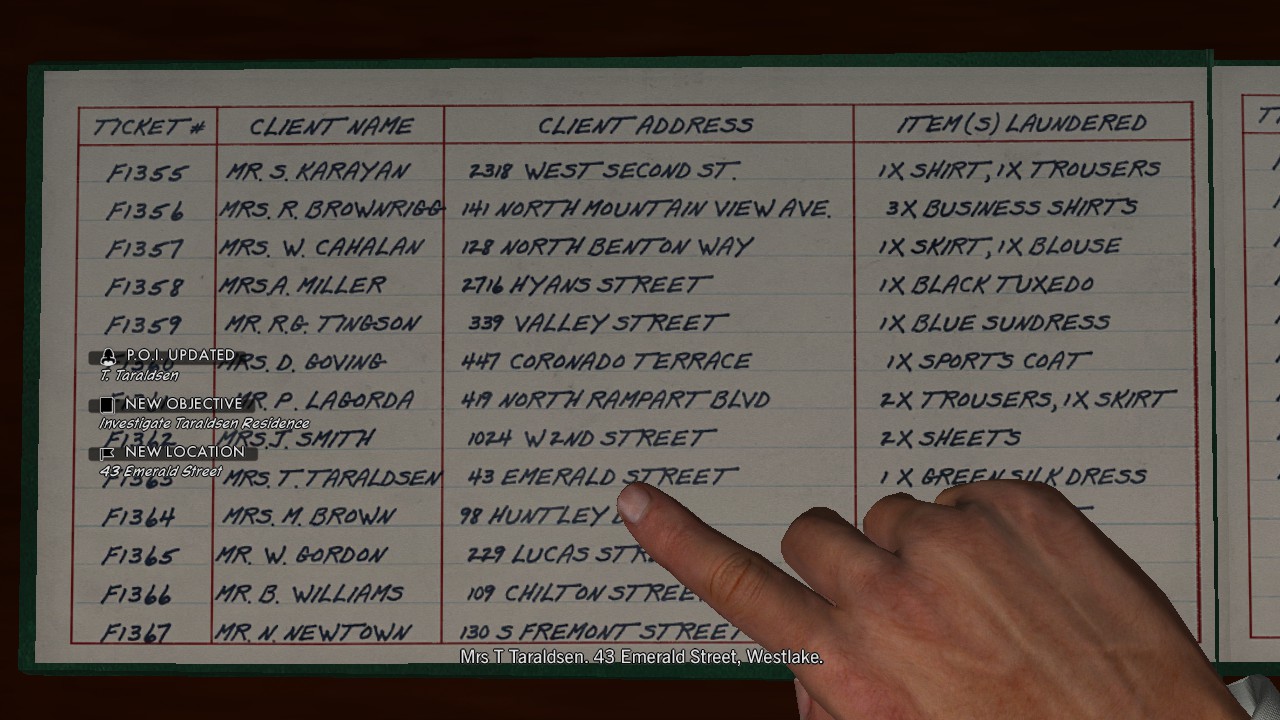 TICKET # CLIENT NAME CLIENT ADDRESS ITEM(S) LAUNDERED
F1355 MR. S. KARAYAN 2318 WEST SECOND ST. 1X SHIRT, 1X TROUSERS
F1356 MRS. R. BROWNRIGG 141 NORTH MOUNTAIN VIEW AVE. 3X BUSINESS SHIRTS
F1357 MRS. W. CAHALAN 128 NORTH BENTON WAY 1X SKIRT, 1X BLOUSE
F1358 MRS.A. MILLER 2716 HYANS STREET 1X BLACK TUXEDO
F1359 MR. R.G. TINGSON 339 VALLEY STREET 1X BLUE SUNDRESS
P.O.I. UPDATED
T. Taraldsen
MRS. D. GOVING 447 CORONADO TERRACE 1X SPORTS COAT
NEW OBJECTIVE
Investigate Taraldsen Residence
MR. P. LAGORDA 419 NORTH RAMPART BLVD 2X TROUSERS, 1X SKIRT
F1362 MRS.J. SMITH 1024 W 2ND STREET 2X SHEETS
NEW LOCATION
43 Emerald Street
F1363 MRS. T. TARALDSEN 43 EMERALD STREET 1X GREEN SILK DRESS
F1364 MRS. M. BROWN 98 HUNTLEY
F1365 MR. W. GORDON 229 LUCAS
F1366 MR. B. WILLIAMS 109 CHILTON STREET
F1367 MR. N. NEWTOWN 130 S FREMONT STREET
Mrs T Taraldsen. 43 Emerald Street, Westlake.